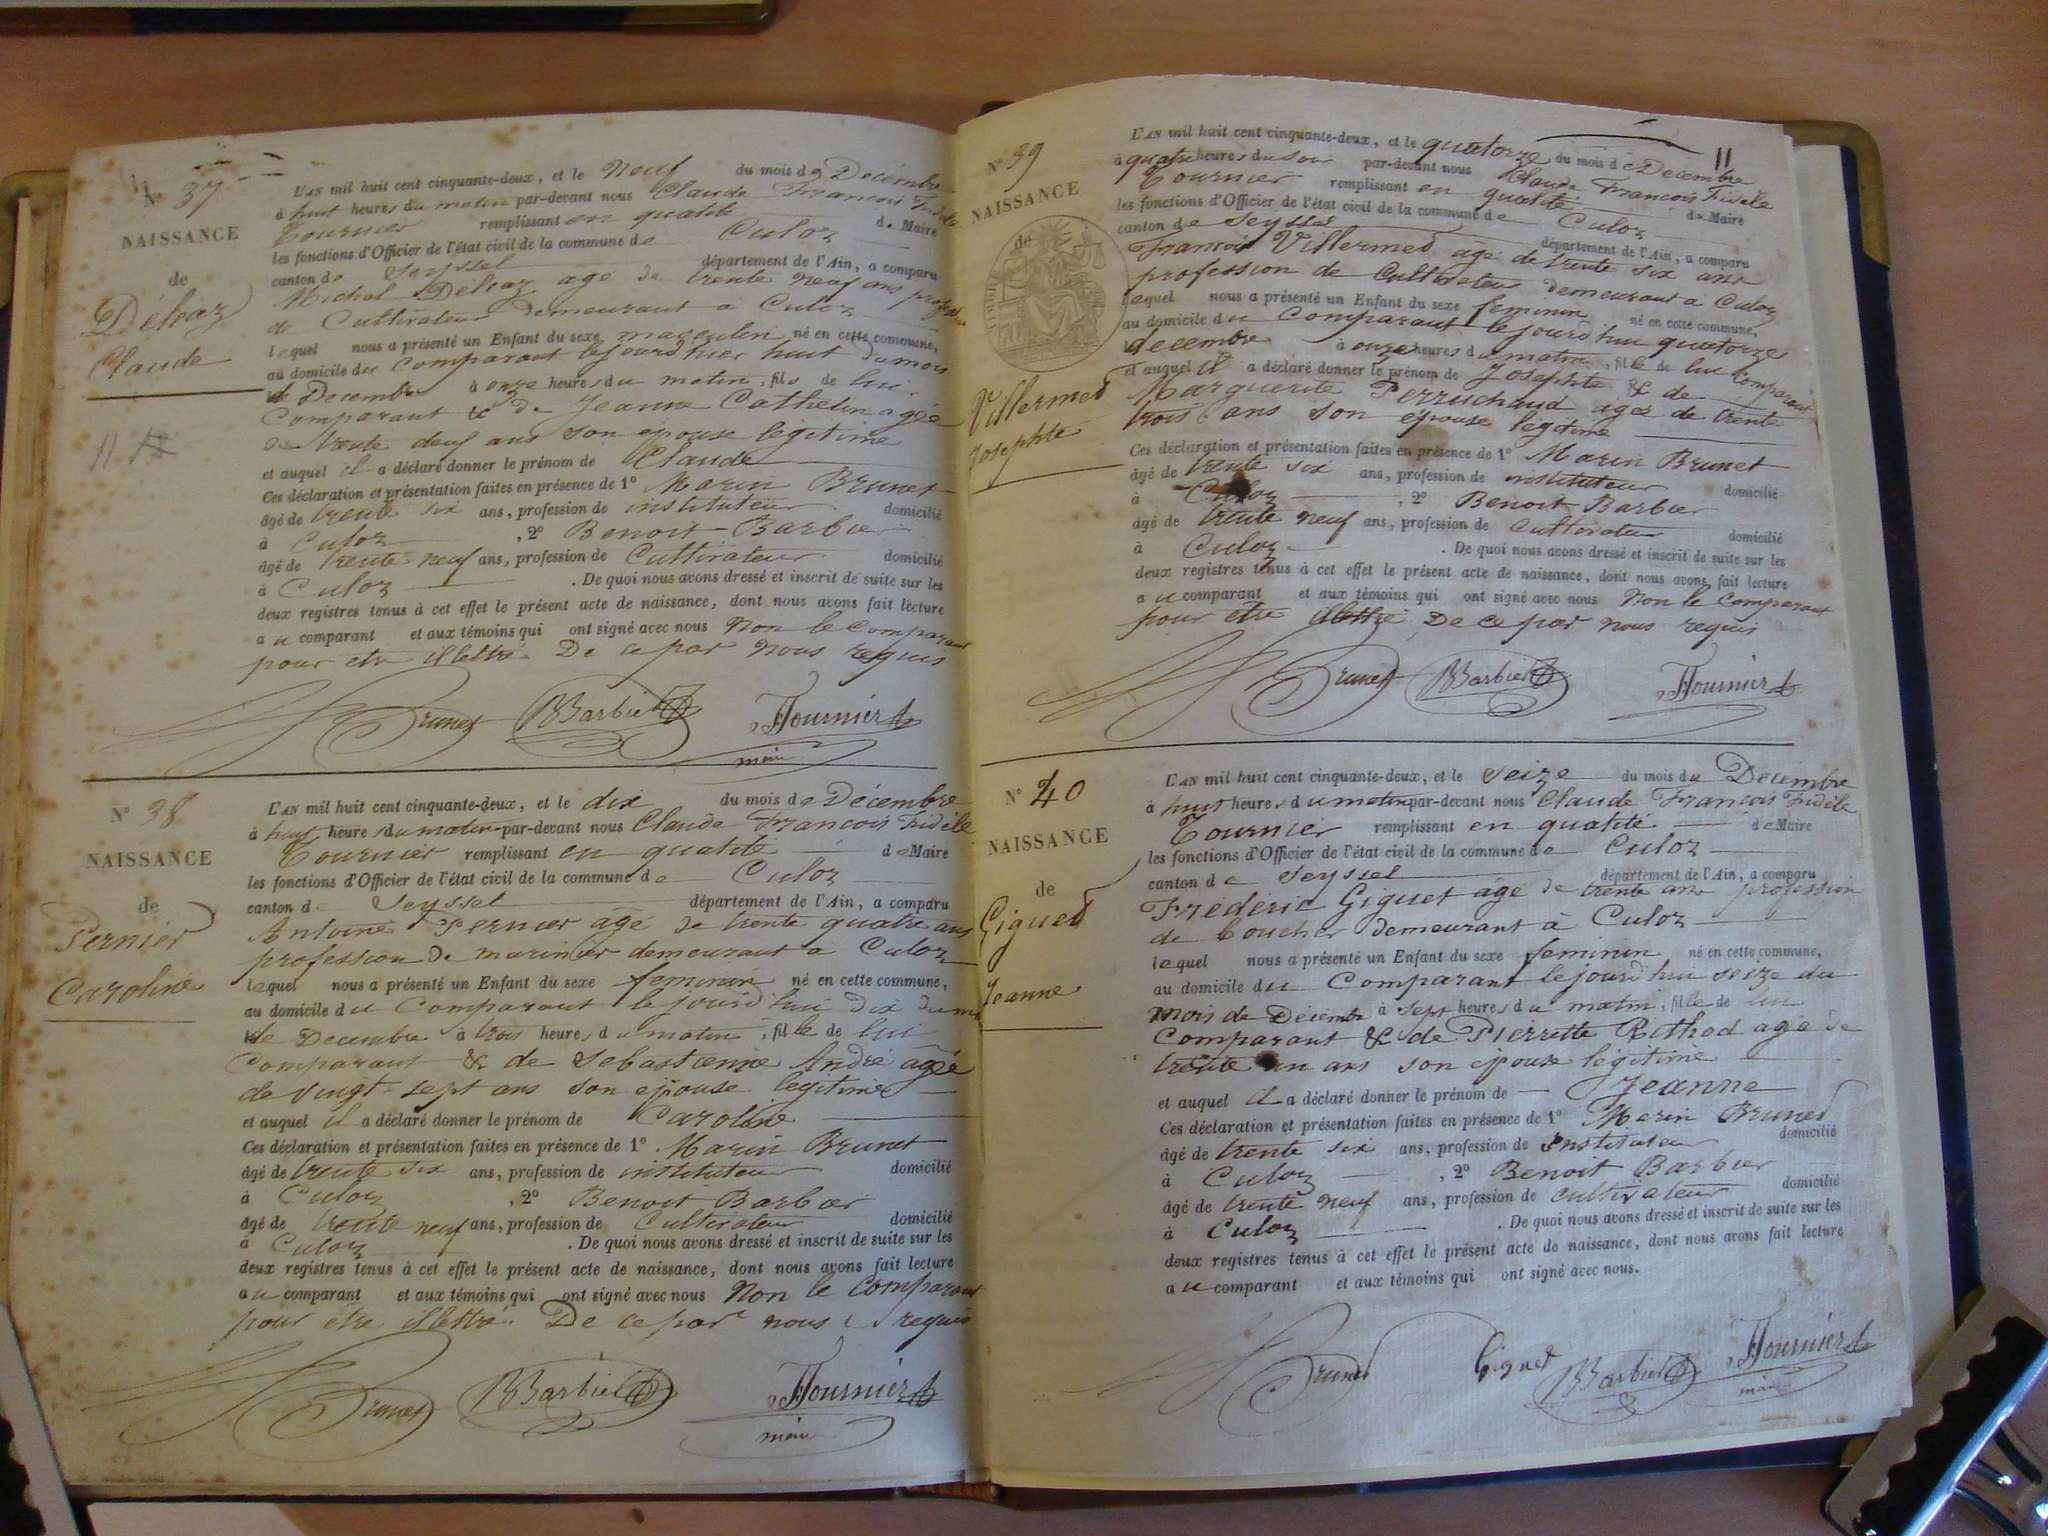 N° 37
NAISSANCE
de
Délaz
Claude
L'AN mil huit cent cinquante-deux, et le neuf du mois de Décembre
à huit heures du matin par-devant nous Claude François Fidèle
Tournier remplissant en qualité de Maire
les fonctions d'Officier de l'état civil de la commune de Culoz
canton de Seyssel département de l'Ain, a comparu
Michel Délaz agé de trente neuf ans profession
de Cultivateur demeurant a Culoz
lequel nous a présenté un Enfant du sexe masculin né en cette commune,
au domicile du comparant le jourd'hier huit du mois
de Decembre à onze heures du matin, fils de lui
Comparant & de Jeanne Cathelin agée
de trente neuf ans son epouse légitime
et auquel il a déclaré donner le prénom de Claude
Ces déclaration et présentation faites en présence de 1° Marin Brunet
âgé de trente six ans, profession de instituteur domicilié
à Culoz , 2° Benoit Barbier
âgé de trente neuf ans, profession de Cultivateur domicilié
à Culoz . De quoi nous avons dressé et inscrit de suite sur les
deux registres tenus à cet effet le présent acte de naissance, dont nous avons fait lecture
au comparant et aux témoins qui ont signé avec nous non le comparant
pour etre illettré De ce par nous requis
Brunet BBarbier Tournier
maire
N° 38
NAISSANCE
de
Pernier
Caroline
L'AN mil huit cent cinquante-deux, et le dix du mois de Décembre
à huit heures du matin par-devant nous Claude François Fidèle
Tournier remplissant en qualité de Maire
les fonctions d'Officier de l'état civil de la commune de Culoz
canton de Seyssel département de l'Ain, a comparu
Antoine Pernier agé de trente quatre ans
profession de marinier demeurant a Culoz
lequel nous a présenté un Enfant du sexe feminin né en cette commune,
au domicile du Comparant le jourd'hui dix du mois
de Decembre à trois heures du matin, fille de lui
Comparant & de Sebastienne André agée
de vingt-sept ans son epouse legitime
et auquel il a déclaré donner le prénom de Caroline
Ces déclaration et présentation faites en présence de 1° Marin Brunet
âgé de trente six ans, profession de instituteur domicilié
à Culoz , 2° Benoit Barbier
âgé de trente neuf ans, profession de Cultivateur domicilié
à Culoz . De quoi nous avons dressé et inscrit de suite sur les
deux registres tenus à cet effet le présent acte de naissance, dont nous avons fait lecture
au comparant et aux témoins qui ont signé avec nous Non le Comparant
pour etre illettré. De ce par nous requis
Brunet BBarbier Tournier
maire
11
N° 39
NAISSANCE
de
Villermet
Josephte
L'AN mil huit cent cinquante-deux, et le quatorze du mois de Decembre
à quatre heures du soir par-devant nous Claude François Fidèle
Tournier remplissant en qualité de Maire
les fonctions d'Officier de l'état civil de la commune de Culoz
canton de Seyssel département de l'Ain, a comparu
François Villermet agé de trente six ans
profession de Cultivateur demeurant a Culoz
lequel nous a présenté un Enfant du sexe feminin né en cette commune,
au domicile du Comparant le jourd'hui quatorze
decembre à onze heures du matin, fille de lui comparant
et auquel il a déclaré donner le prénom de Josephte & de
Marguerite Perruchaud agée de trente
trois ans son epouse legitime
Ces déclaration et présentation faites en présence de 1° Marin Brunet
âgé de trente six ans, profession de instituteur domicilié
à Culoz , 2° Benoit Barbier
âgé de trente neuf ans, profession de Cultivateur domicilié
à Culoz . De quoi nous avons dressé et inscrit de suite sur les
deux registres tenus à cet effet le présent acte de naissance, dont nous avons fait lecture
au comparant et aux témoins qui ont signé avec nous Non le Comparant
pour etre illettré De ce par nous requis
Brunet BBarbier Tournier
N° 40
NAISSANCE
de
Giguet
Jeanne
L'AN mil huit cent cinquante-deux, et le seize du mois de Décembre
à huit heures du matin par-devant nous Claude François Fidèle
Tournier remplissant en qualité de Maire
les fonctions d'Officier de l'état civil de la commune de Culoz
canton de Seyssel département de l'Ain, a comparu
Frédéric Giguet agé de trente ans profession
de boucher demeurant à Culoz
lequel nous a présenté un Enfant du sexe feminin né en cette commune,
au domicile du Comparant le jourd'hui seize du
mois de Décembre à sept heures du matin, fille de lui
Comparant & de Pierrette Rithod agée de
trente un ans son epouse légitime
et auquel il a déclaré donner le prénom de Jeanne
Ces déclaration et présentation faites en présence de 1° Marin Brunet
âgé de trente six ans, profession de Instituteur domicilié
à Culoz , 2° Benoit Barbier
âgé de trente neuf ans, profession de cultivateur domicilié
à Culoz . De quoi nous avons dressé et inscrit de suite sur les
deux registres tenus à cet effet le présent acte de naissance, dont nous avons fait lecture
au comparant et aux témoins qui ont signé avec nous.
Brunet Giguet BBarbier Tournier
maire